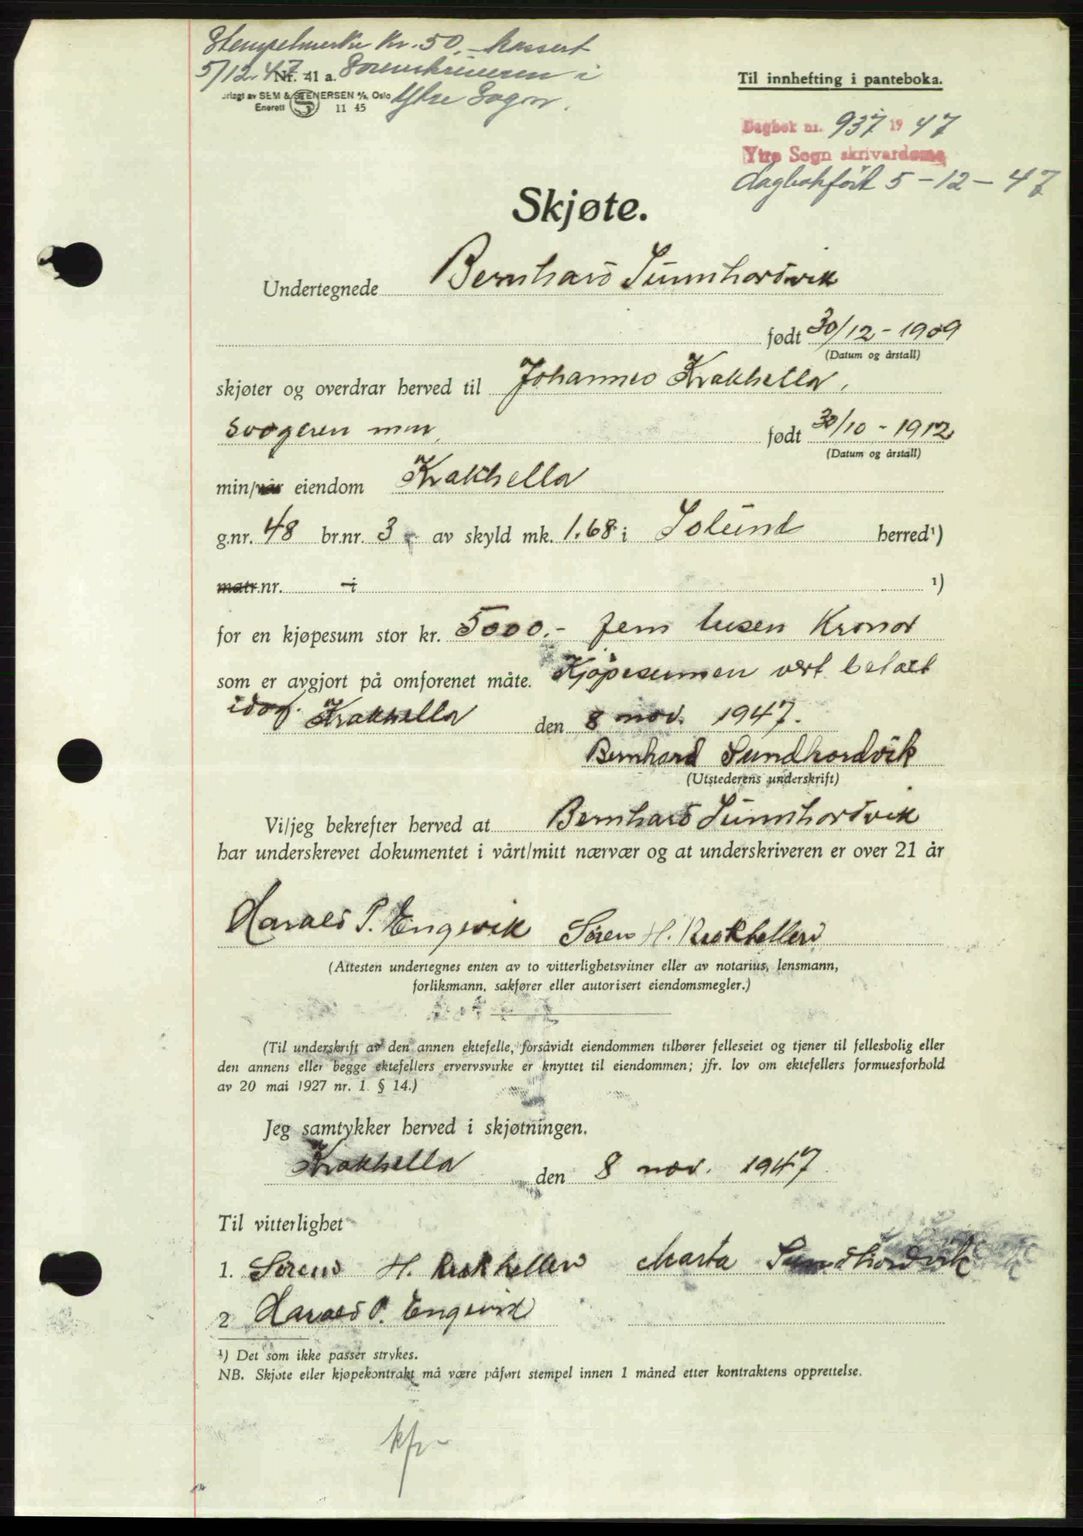 Stempelmerke kr. 50.- kassert
5/12.47. Sorenskriveren i
Ytre Sogn.
Nr. 41 a.
SEM & STENERSEN A/S, Oslo
Enerett S 11 45
Til innhefting i panteboka.
Dagbok nr. 937 19 47
Ytre Sogn skrivardøme
dagbokført 5-12-47
Skjøte.
Undertegnede Bernhard Sunnhordvik
født 30/12-1909
(Datum og årstall)
skjøter og overdrar herved til Johannes Krakhella,
svogeren min, født 30/10-1912
(Datum og årstall)
min/vår eiendom Krakhella
g.nr. 48 br.nr. 3 av skyld mk. 1.68 i Solund herred¹)
matr.nr. i ¹)
for en kjøpesum stor kr. 5000.- fem tusen Kronor
som er avgjort på omforenet måte. Kjøpesumen vert betalt
idag. Krakhella den 8 nov. 1947.
Bernhard Sundhordvik
(Utstederens underskrift)
Vi/jeg bekrefter herved at Bernhard Sunnhordvik
har underskrevet dokumentet i vårt/mitt nærvær og at underskriveren er over 21 år
Harald P. Engevik Søren H. Krakhellen
(Attesten undertegnes enten av to vitterlighetsvitner eller av notarius, lensmann,
forliksmann, sakfører eller autorisert eiendomsmegler.)
(Til underskrift av den annen ektefelle, forsåvidt eiendommen tilhører felleseiet og tjener til fellesbolig eller
den annens eller begge ektefellers ervervsvirke er knyttet til eiendommen; jfr. lov om ektefellers formuesforhold
av 20 mai 1927 nr. 1 § 14.)
Jeg samtykker herved i skjøtningen.
Krakhella den 8 nov. 1947
Til vitterlighet
1. Søren H. Krakhellen Marta Sundhordvik
2 Harald P. Engevik
¹) Det som ikke passer strykes.
NB. Skjøte eller kjøpekontrakt må være påført stempel innen 1 måned etter kontraktens opprettelse.